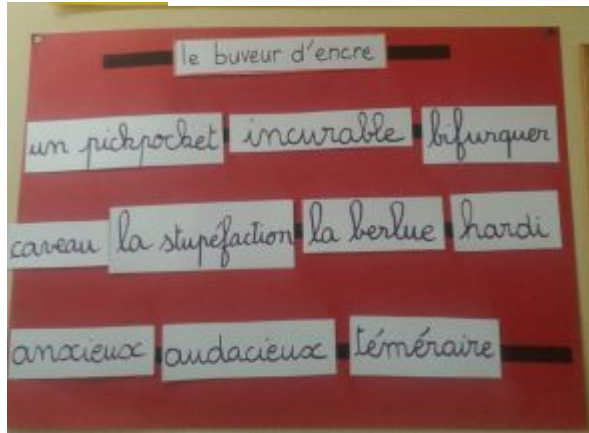 le buveur d'encre
un pickpocket incurable bifurquer
caveau la stupéfaction la berlue hardi
anxieux audacieux téméraire